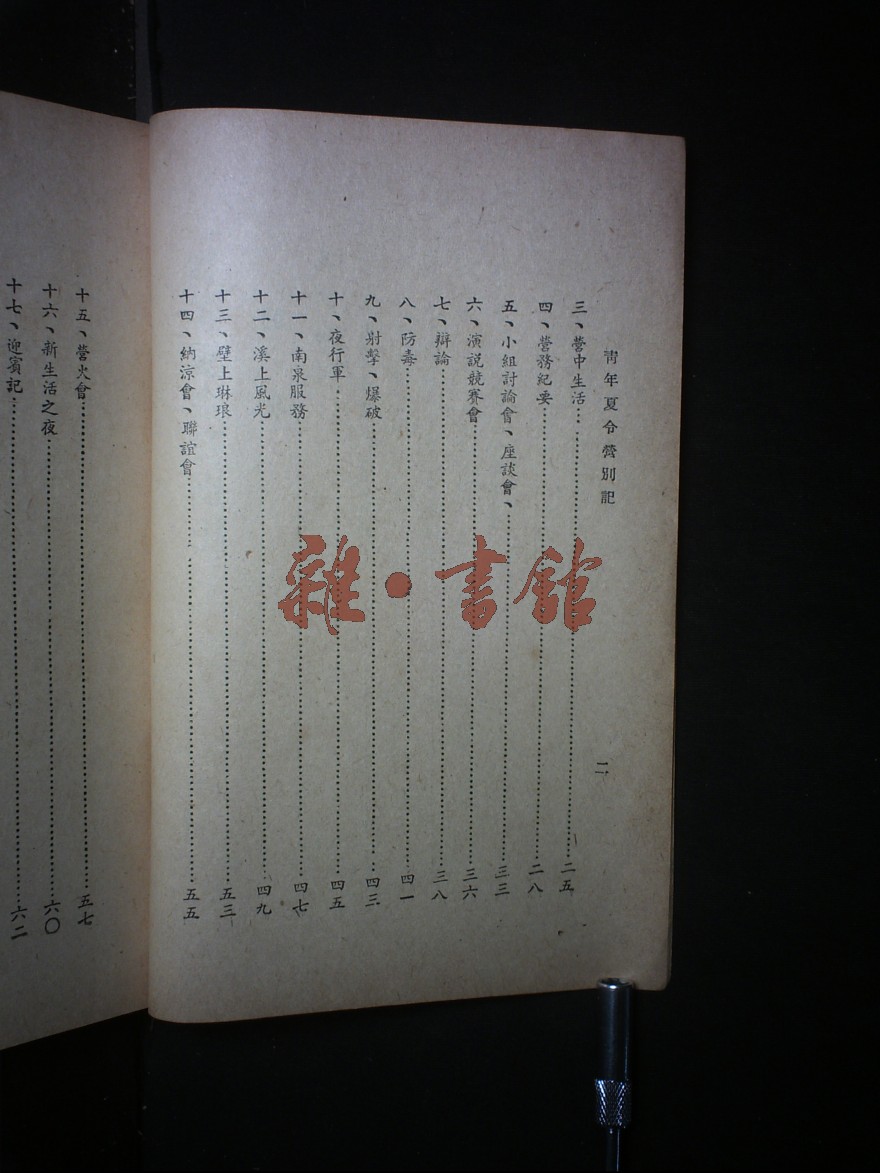 青年夏令營別記
二
三、營中生活……二五
四、營務紀要……二八
五、小組討論會、座談會、……三三
六、演說競賽會……三六
七、辯論……三八
八、防毒……四一
九、射擊、爆破……四三
十、夜行軍……四五
十一、南泉服務……四七
十二、溪上風光……四九
十三、壁上琳琅……五三
十四、納涼會、聯誼會……五五
十五、營火會……五七
十六、新生活之夜……六〇
十七、迎賓記……六二
雜·書館